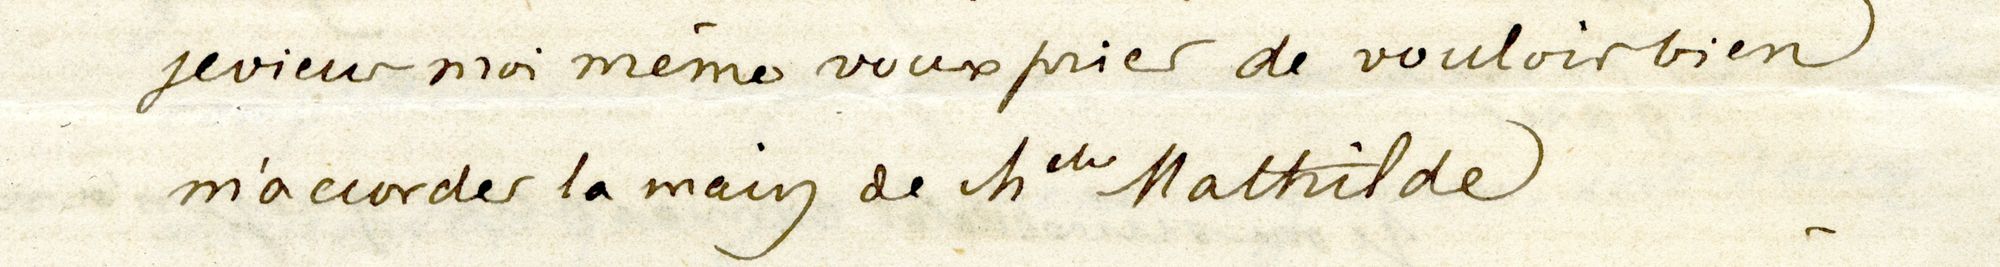 je viens moi même vous prier de vouloir bien
m'accorder la main de Melle Mathilde